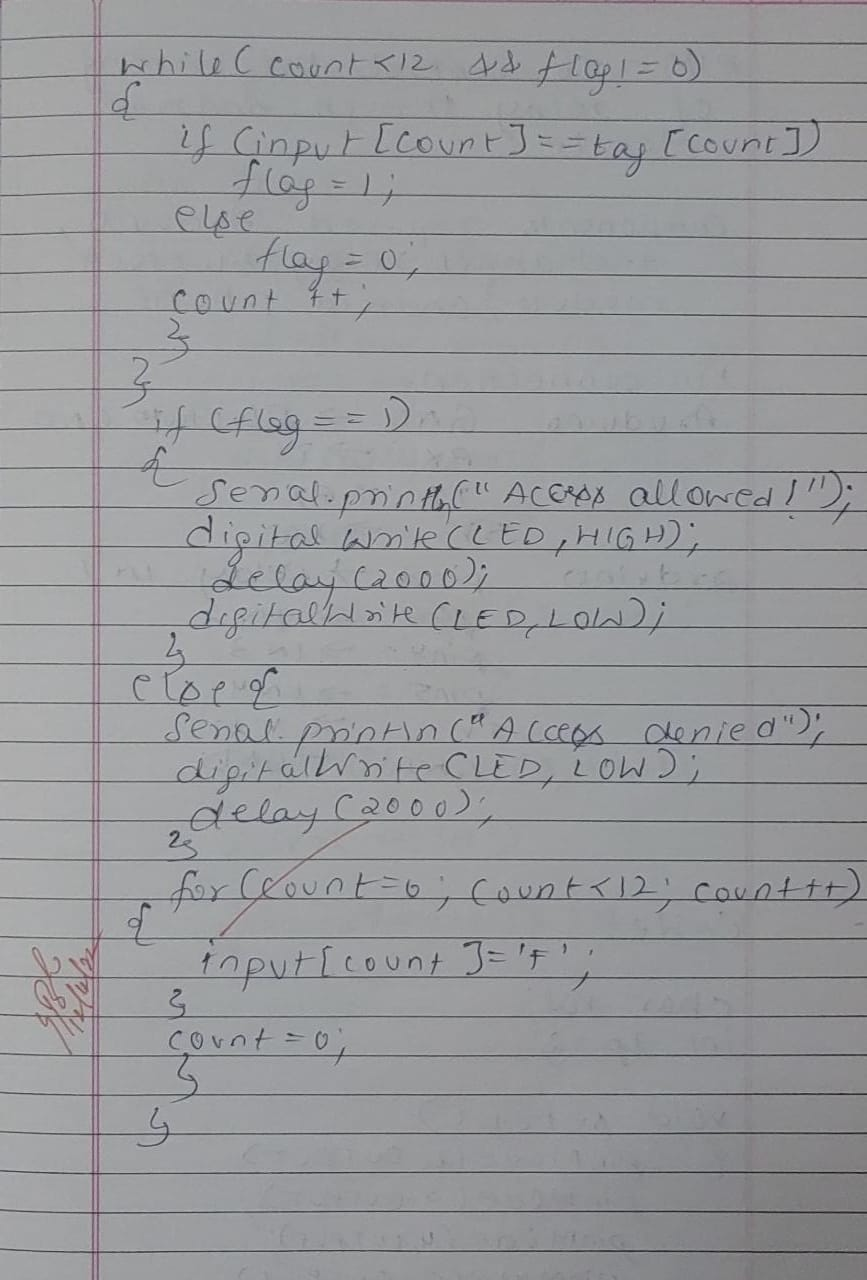 while ( count <12 && flag! = 0)
{
if (input [count] == tag [count])
flag = 1;
else
flag = 0;
count ++;
}
}
if (flag == 1)
{
Serial.println("Access allowed!");
digital Write (LED, HIGH);
delay (2000);
digitalWrite (LED, LOW);
}
else {
Serial.println("Access denied");
digitalWrite (LED, LOW);
delay (2000);
}
for (count=0; count<12; count++)
{
input [count] = 'F';
}
count = 0;
}
}